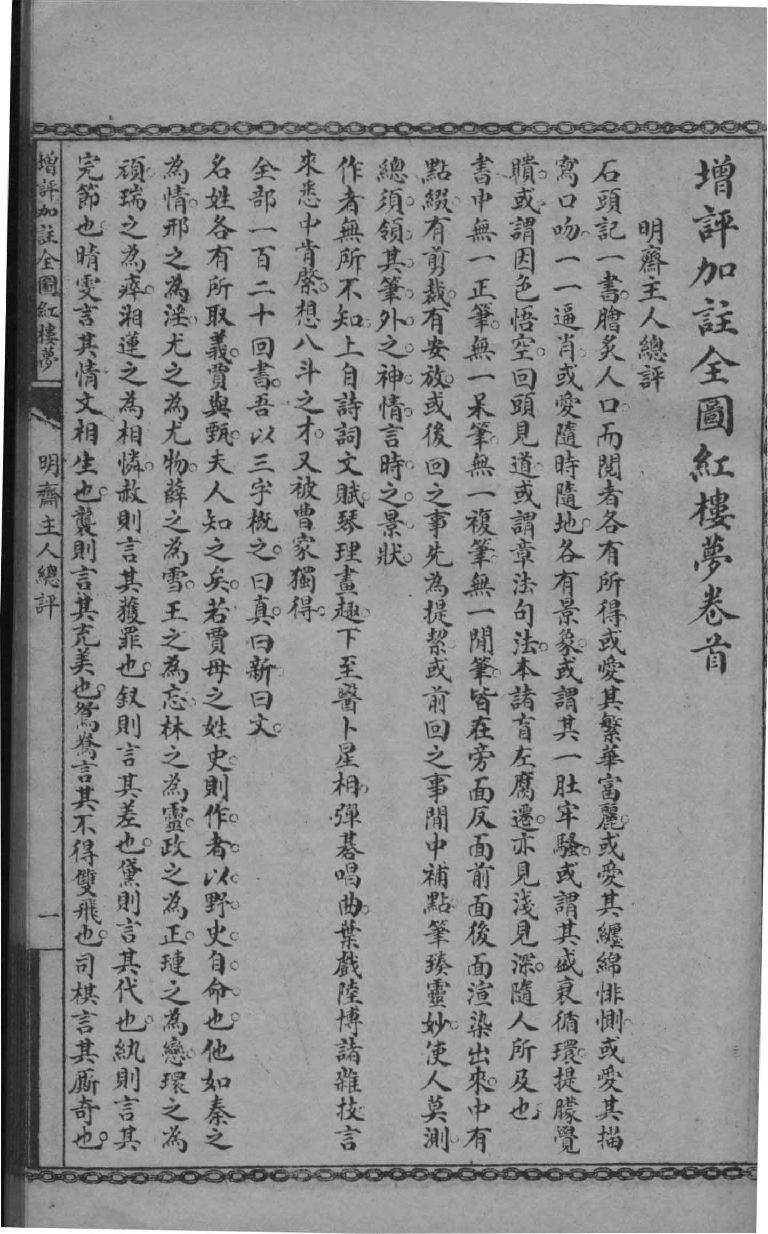 增評加註全圖紅樓夢卷首
明齋主人總評
石頭記一書。膾炙人口。而閱者各有所得。或愛其繁華富麗。或愛其纏綿悱惻。或愛其描
寫口吻。一一逼肖。或愛隨時隨地。各有景象。或謂其一肚牢騷。或謂其盛衰循環。提矇覺
聵。或謂因色悟空。回頭見道。或謂章法句法。本諸盲左腐遷。亦見淺見深。隨人所及也。
書中無一正筆。無一呆筆。無一複筆。無一閒筆。皆在旁面反面前面後面渲染出來。中有
點綴。有剪裁。有安放。或後回之事先為提挈。或前回之事閒中補點。筆臻靈妙。使人莫測。
總須領其筆外之神情。言時之景狀。
作者無所不知。上自詩詞文賦。琴理畫趣。下至醫卜星相。彈棊唱曲。葉戲陸博諸雜技。言
來悉中肯綮。想八斗之才。又被曹家獨得。
全部一百二十回書。吾以三字概之。曰真。曰新。曰文。
名姓各有所取義。賈與甄。夫人知之矣。若賈母之姓史。則作者以野史自命也。他如秦之
為情。邢之為淫。尤之為尤物。薛之為雪。王之為忘。林之為靈。政之為正。璉之為戀。環之為
頑。瑞之為瘁。湘蓮之為相憐。赦則言其獲罪也。釵則言其差也。黛則言其代也。紈則言其
完節也。晴雯言其情文相生也。襲則言其充美也。鴛鴦言其不得雙飛也。司棋言其廝奇也。
增評加註全圖紅樓夢
明齋主人總評
一